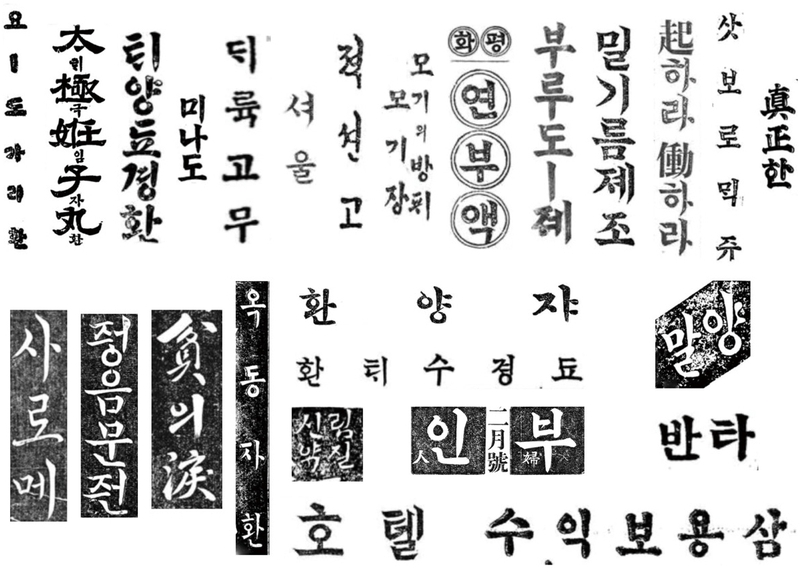 요ㅣ도가리환
太極姙子丸
틔극임자환
틔양됴경환
미나도
듸륙고무
셔울
모기의방퓌
모기장
평화
연부액
부루도ㅣ제
밀기름제조
起하라働하라
삿보로믹쥬
眞正한
사로메
정음문전
貧의淚
옥동자환
쟈양환
됴경수틔환
양말
부인
婦人
二月號
반타
호텔
삼용보익수